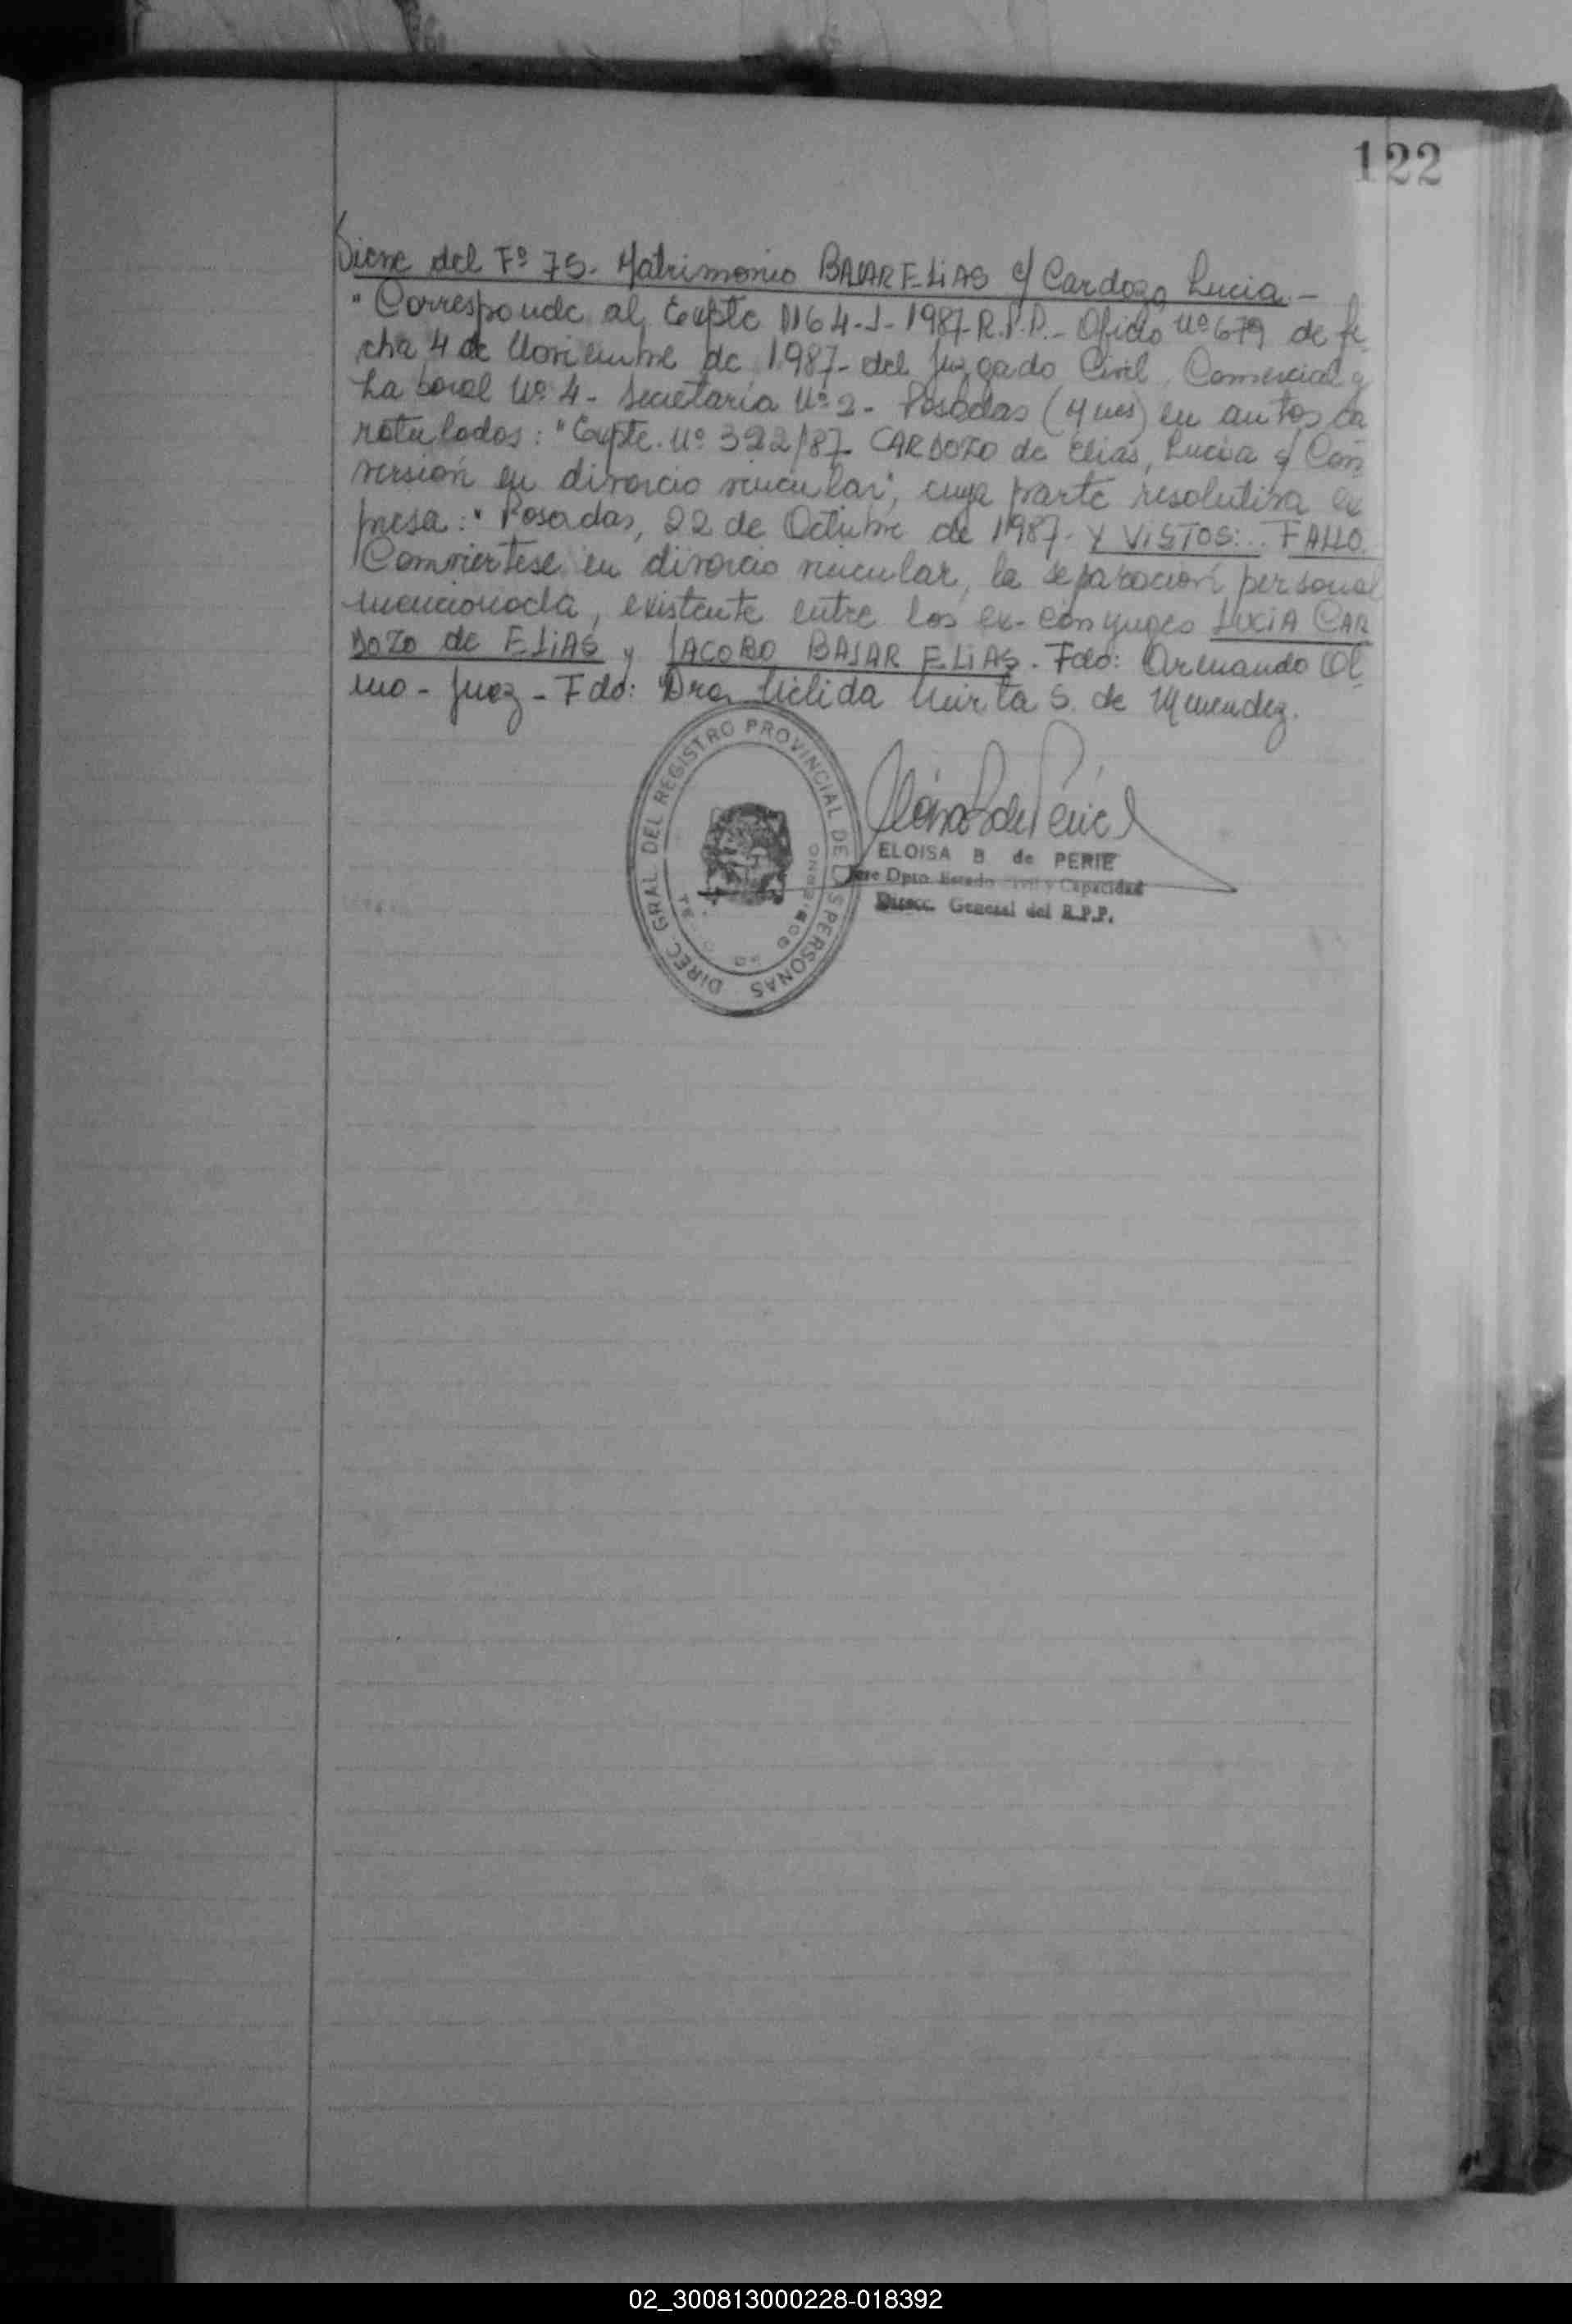 122
Viene del Fº 75. Matrimonio BAJAR ELIAS c/ Cardozo Lucia.-
"Corresponde al Expte 1164-J-1987-R.P.P.- Oficio Nº 679 de fe-
cha 4 de Noviembre de 1987- del Juzgado Civil, Comercial y
Laboral Nº 4- Secretaría Nº 2- Posadas (Mnes) en autos ca
ratulados: "Expte. Nº 322/87 CARDOZO de Elias, Lucia s/ Con
versión en divorcio vincular", cuya parte resolutiva ex
presa: "Posadas, 22 de Octubre de 1987- Y VISTOS:.. FALLO.
Conviertese en divorcio vincular, la separación personal
mencionada, existente entre los ex-conyuges LUCIA CAR
DOZO de ELIAS y JACOBO BAJAR ELIAS. Fdo: Armando Ol-
mo- Juez- Fdo: Dra. Nélida Mirta S. de Menendez.
DIREC. GRAL. DEL REGISTRO PROVINCIAL DE LAS PERSONAS
ELOISA B de PERIE
Jefe Dpto. Estado Civil y Capacidad
Direcc. General del R.P.P.
02_300813000228-018392